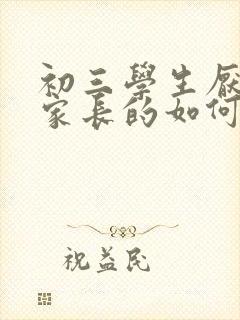 初三學生厭
家長的如何
祝益民